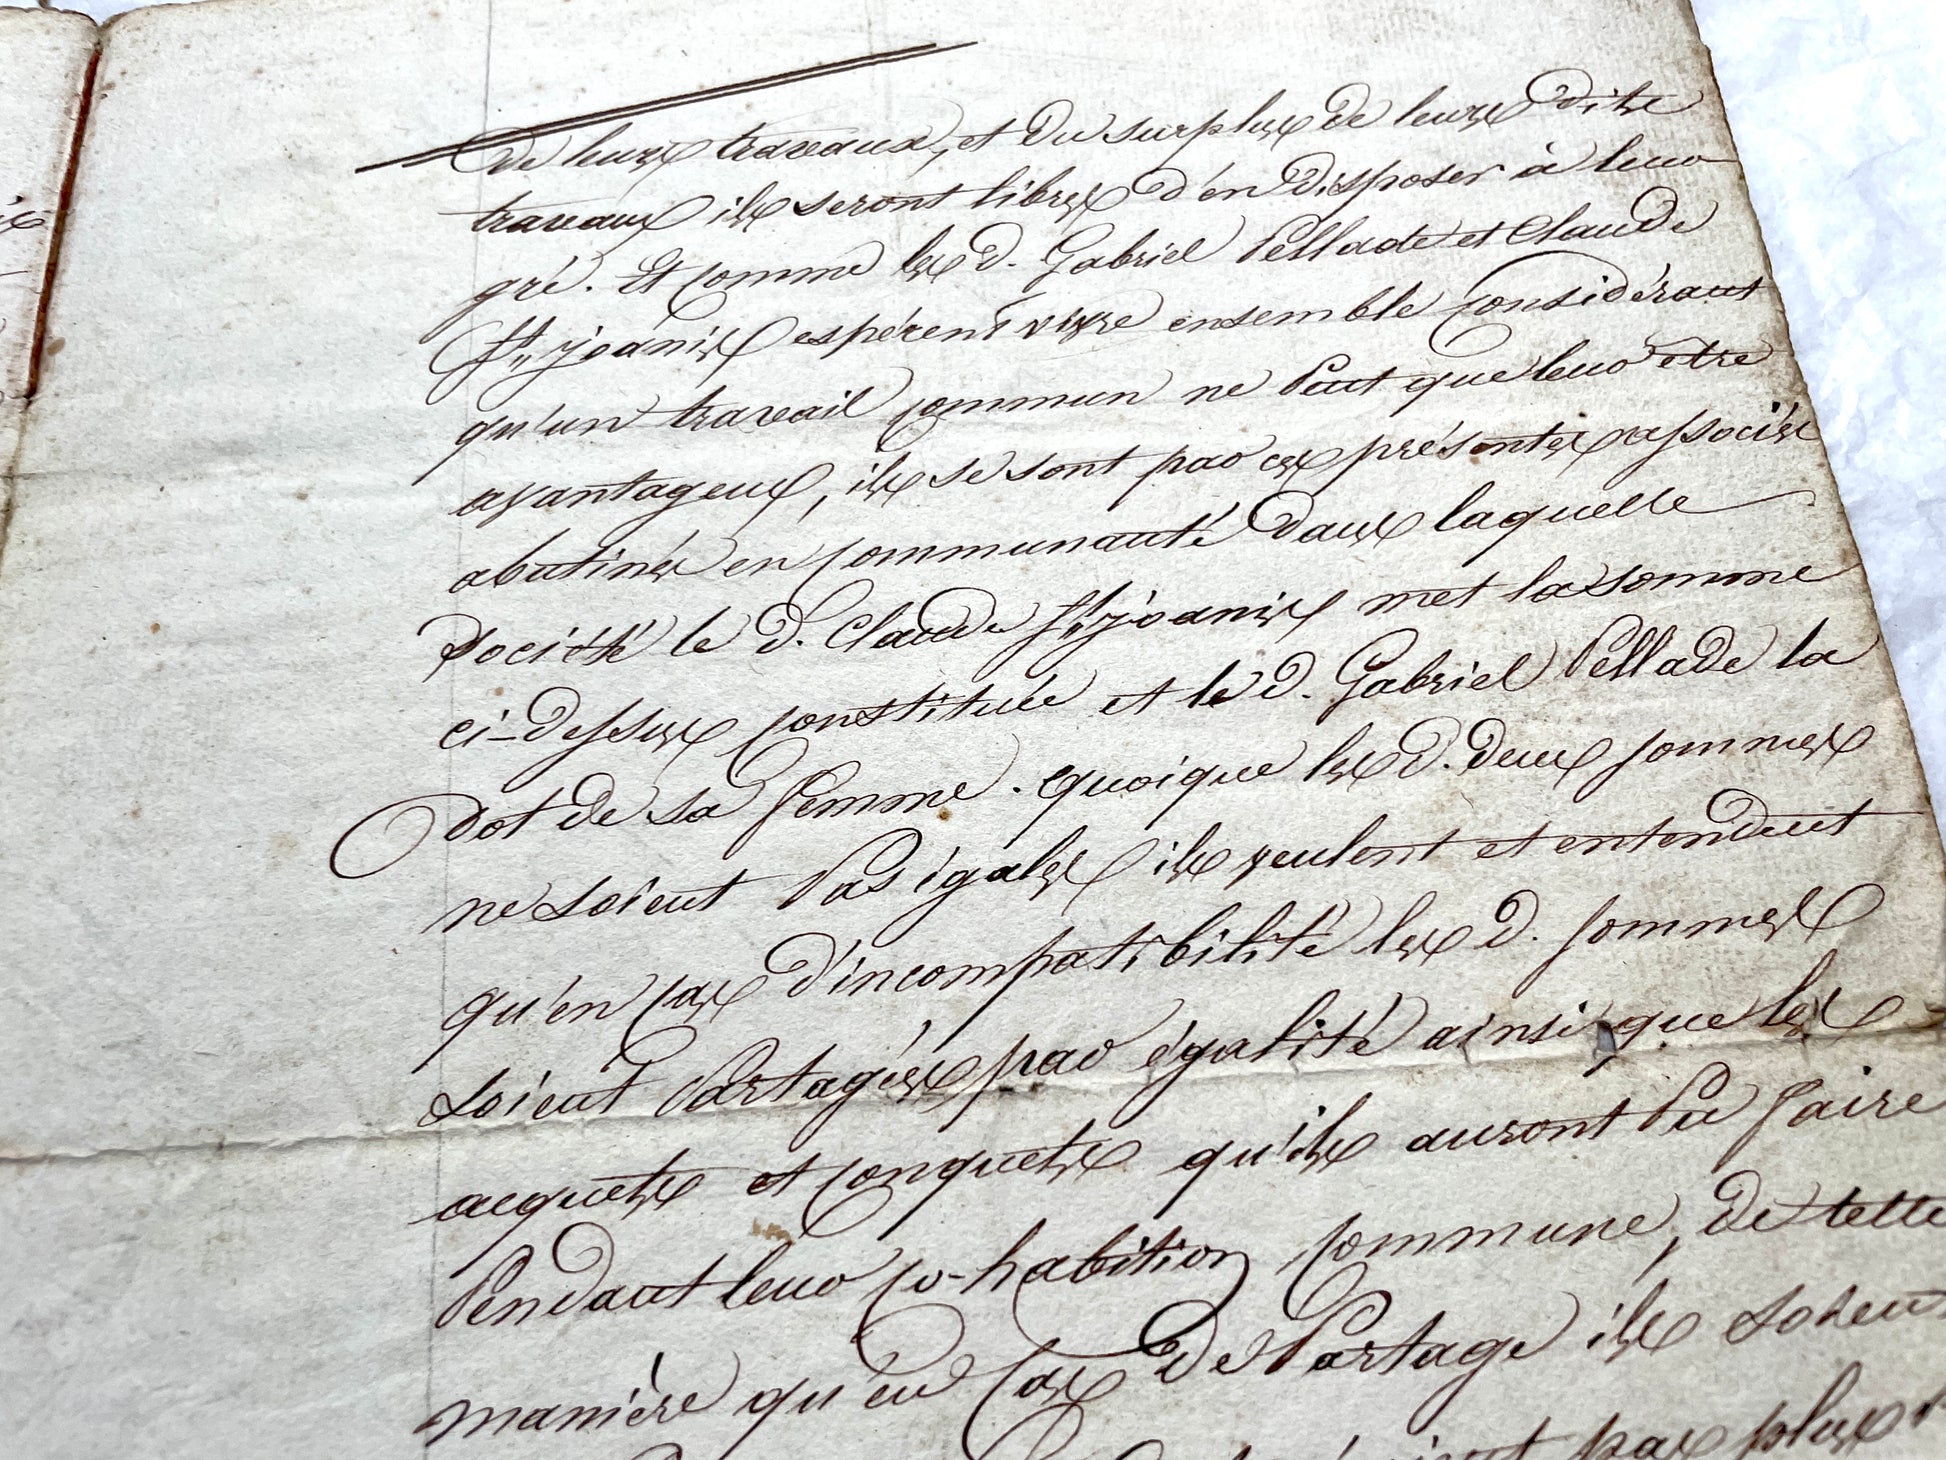 de leurs travaux, et du surplus de leurs dits
travaux ils seront libres d'en disposer à leur
gré. Et comme les d. Gabriel Pellade et Claude
St. joanis espérent vivre ensemble considérant
qu'un travail commun ne Peut que leur etre
avantageux, ils se sont par ces présentes associés
abutinés en communauté dans laquelle
société le d. Claude St. joanis met la somme
ci-dessus constituée et le d. Gabriel Pellade la
dot de sa femme. quoique les d. deux sommes
ne soient Pas égales ils veulent et entendent
qu'en cas d'incompatibilité les d. sommes
soient Partagées par égalité ainsi que les
acquets et conquets qu'ils auront Pu faire
Pendant leur co-habition commune, de telle
manière qu'en cas de Partage ils soient
pas plus